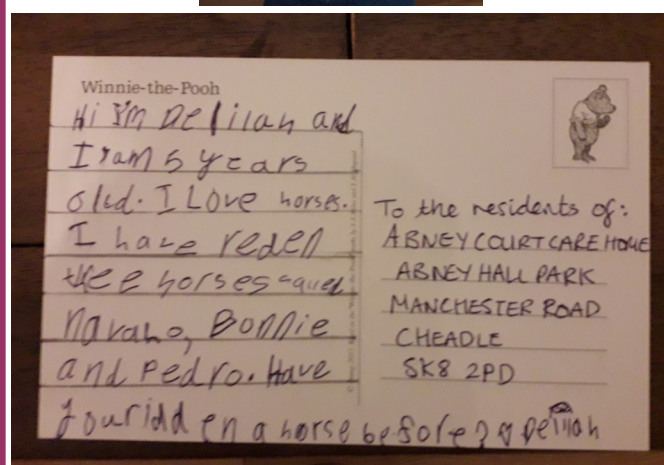 Winnie-the-Pooh
Hi I'm Delilah and
I am 5 years
old. I Love horses.
I have reden
thee horses
Navaho, Bonnie
and Pedro. Have
you ridden a horse before? Delilah
To the residents of:
ABNEY COURT CARE HOME
ABNEY HALL PARK
MANCHESTER ROAD
CHEADLE
SK8 2PD